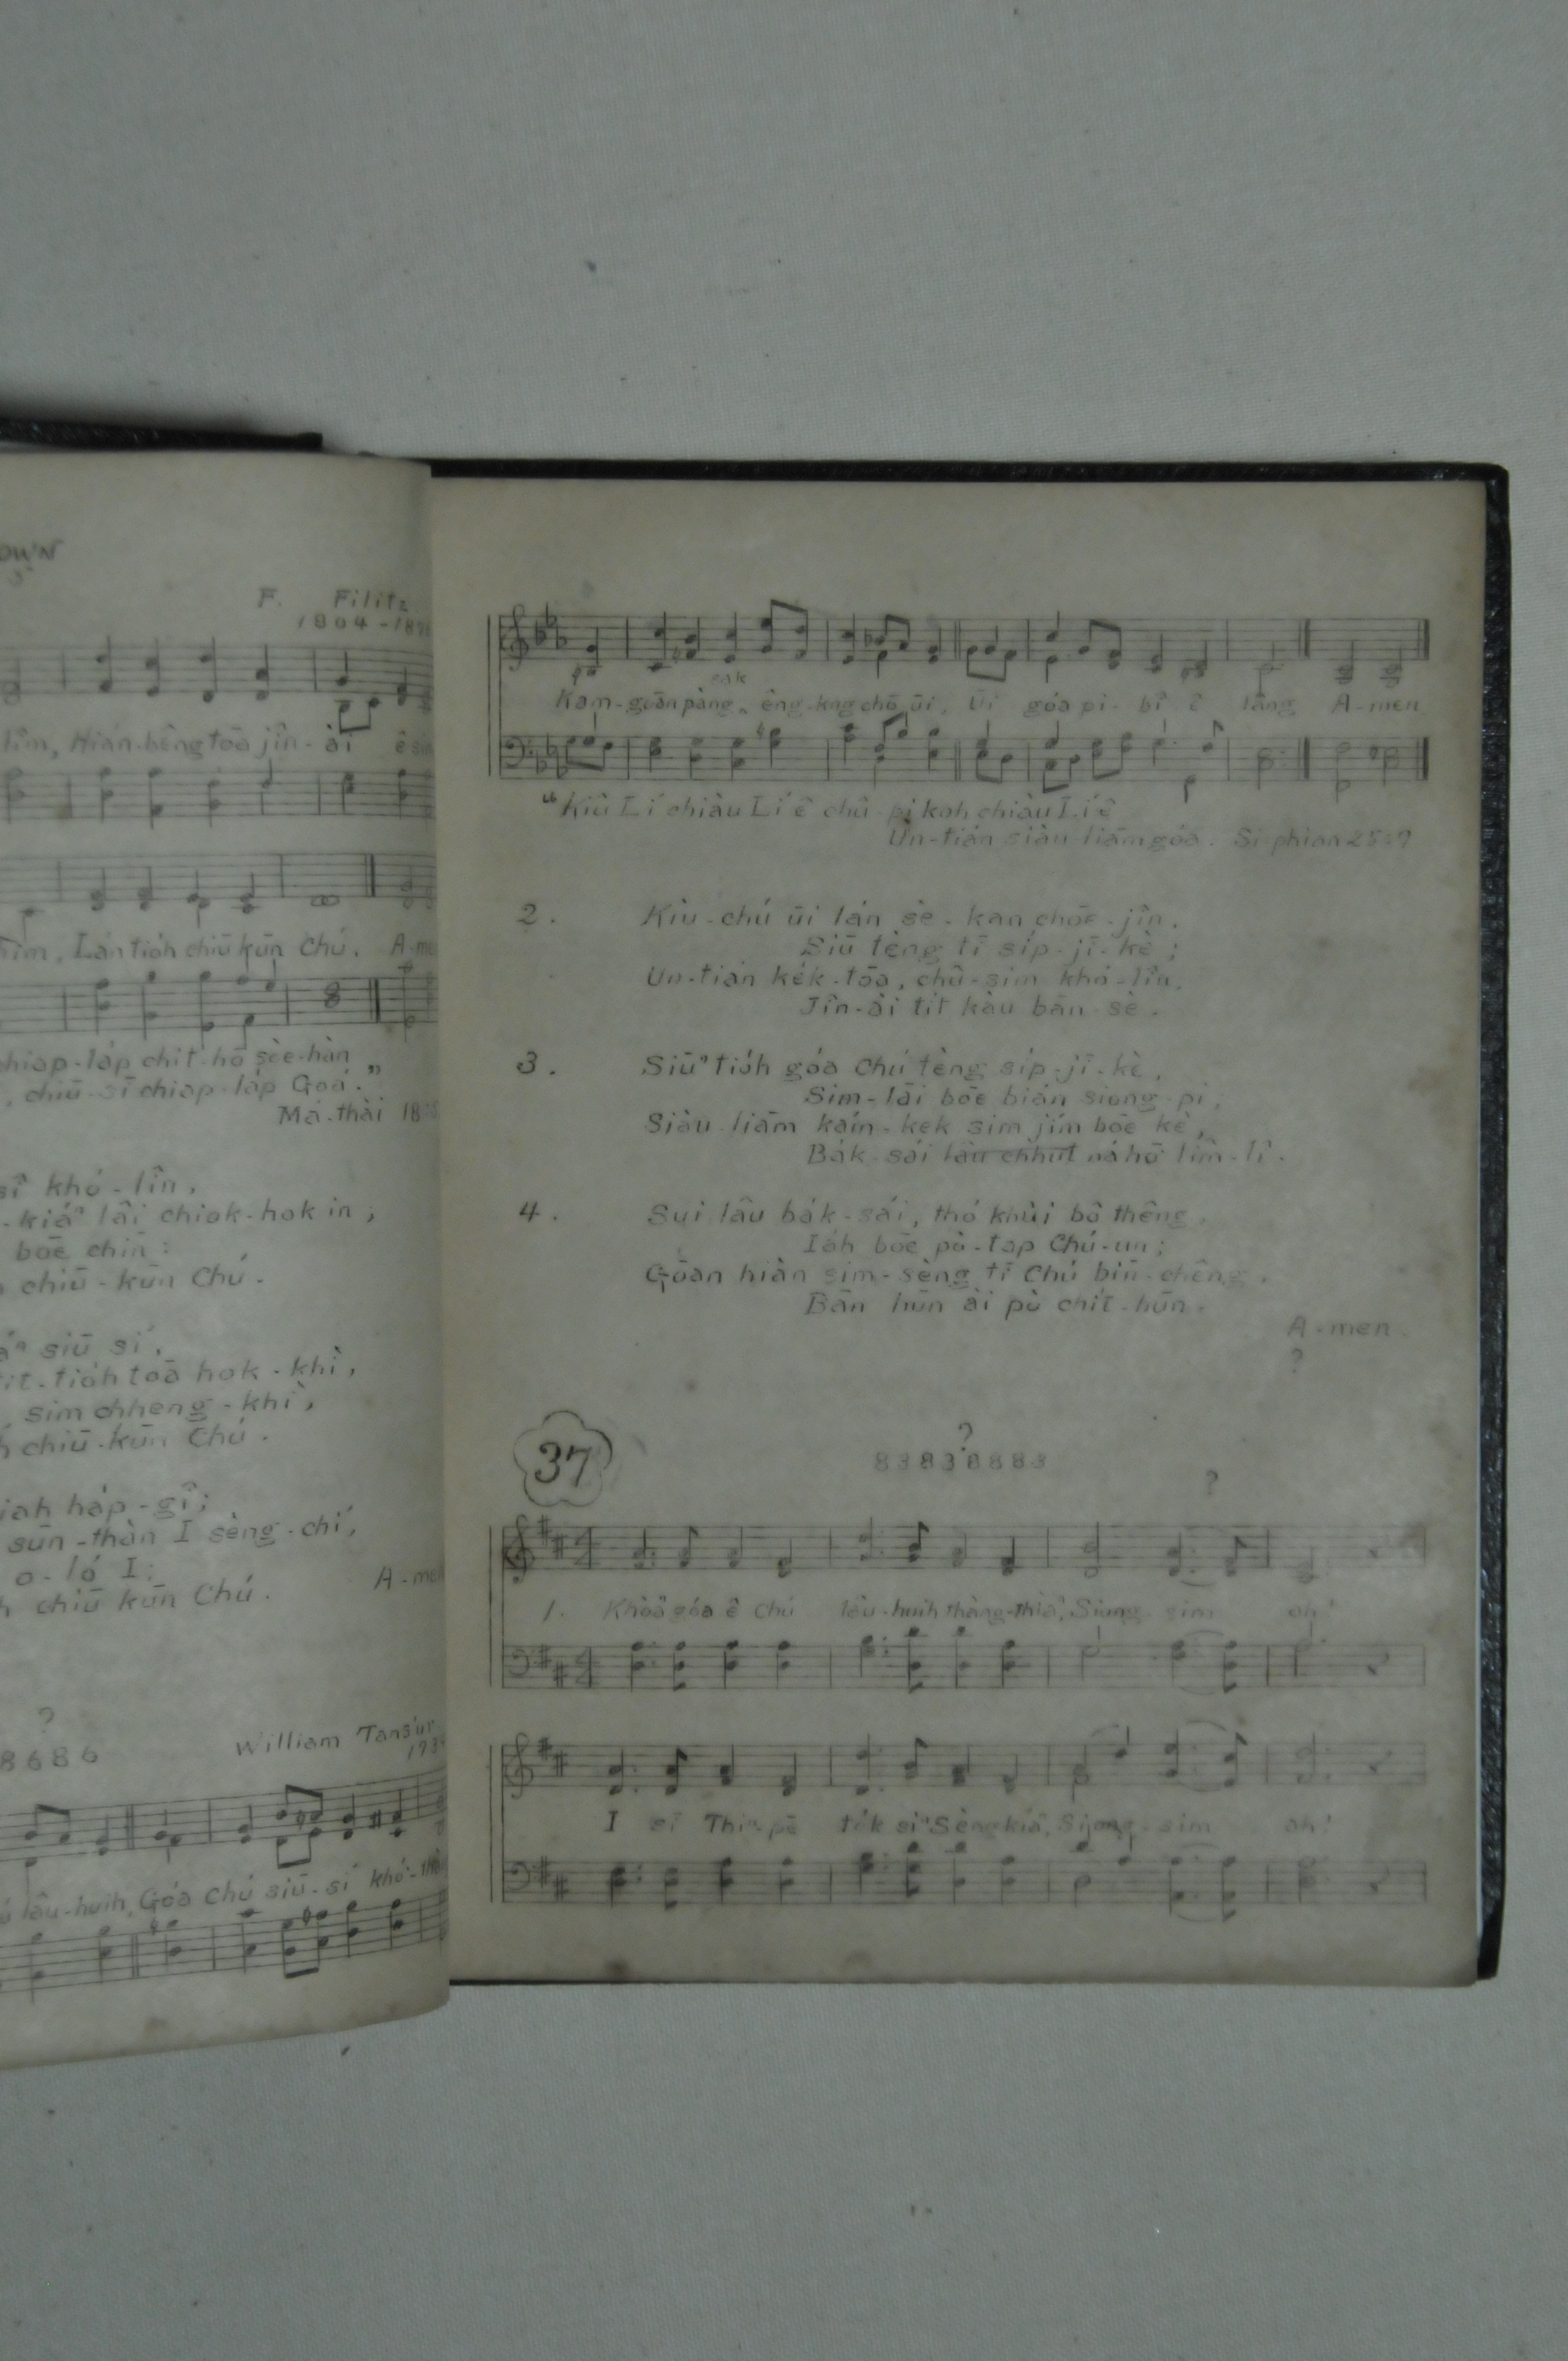 OWN
F. Filitz
1804-18
lîm, Hián-bêng tōa jîn-ài ê sim
Lán tio̍h chiū kūn Chú. A-me
chiap-la̍p chi̍t-hō sòe-hàn
chiū-sī chiap-la̍p Góa."
Má-thài 18:5
sî khó-lîn,
-kiáⁿ lâi chiok-hok in;
bōe chīn:
chiū-kūn Chú.
siū sí,
tit-tio̍h tōa hok-khì,
sim chheng-khì,
chiū-kūn Chú.
iah ha̍p-gî;
sūn-thàn I sèng-chí,
o-ló I:
chiū kūn Chú. A-men
?
8686
William Tans'ur
173
lâu-huih, Góa Chú siū-sí khó-thò
sak
Kam-goān pàng, êng-kng chō ūi, Ūi góa pi-bî ê lâng A-men
"Kiû Lí chiàu Lí ê chû-pi koh chiàu Lí ê
Un-tián siàu liām góa. Si-phian 25:7
2. Kiù-chú ūi lán sè-kan chōe-jîn,
Siū tèng tī si̍p-jī-kè;
Un-tián ke̍k-tōa, chû-sim khó-lîn,
Jîn-ài tit kàu bān-sè.
3. Siūⁿ tio̍h góa Chú tèng si̍p-jī-kè,
Sim-lāi bōe bián siong-pi;
Siàu liām kaín-kek sim jím bōe kè,
Ba̍k-sái lâu chhut ná hō͘ lîm-lî.
4. Sui lâu ba̍k-sái, thó͘ khùi bô thêng,
Ia̍h bōe pò-tap Chú-un;
Goān hiàn sim-sèng tī Chú bīn-chêng,
Bān hūn ài pò chi̍t-hūn.
A-men.
?
37
?
83838883
?
1. Khòaⁿ góa ê Chú lâu-huih thàng-thiàⁿ, Siong-sim ah!
I sī Thiⁿ-pē te̍k siⁿ Sèng kiáⁿ, Siong-sim ah!